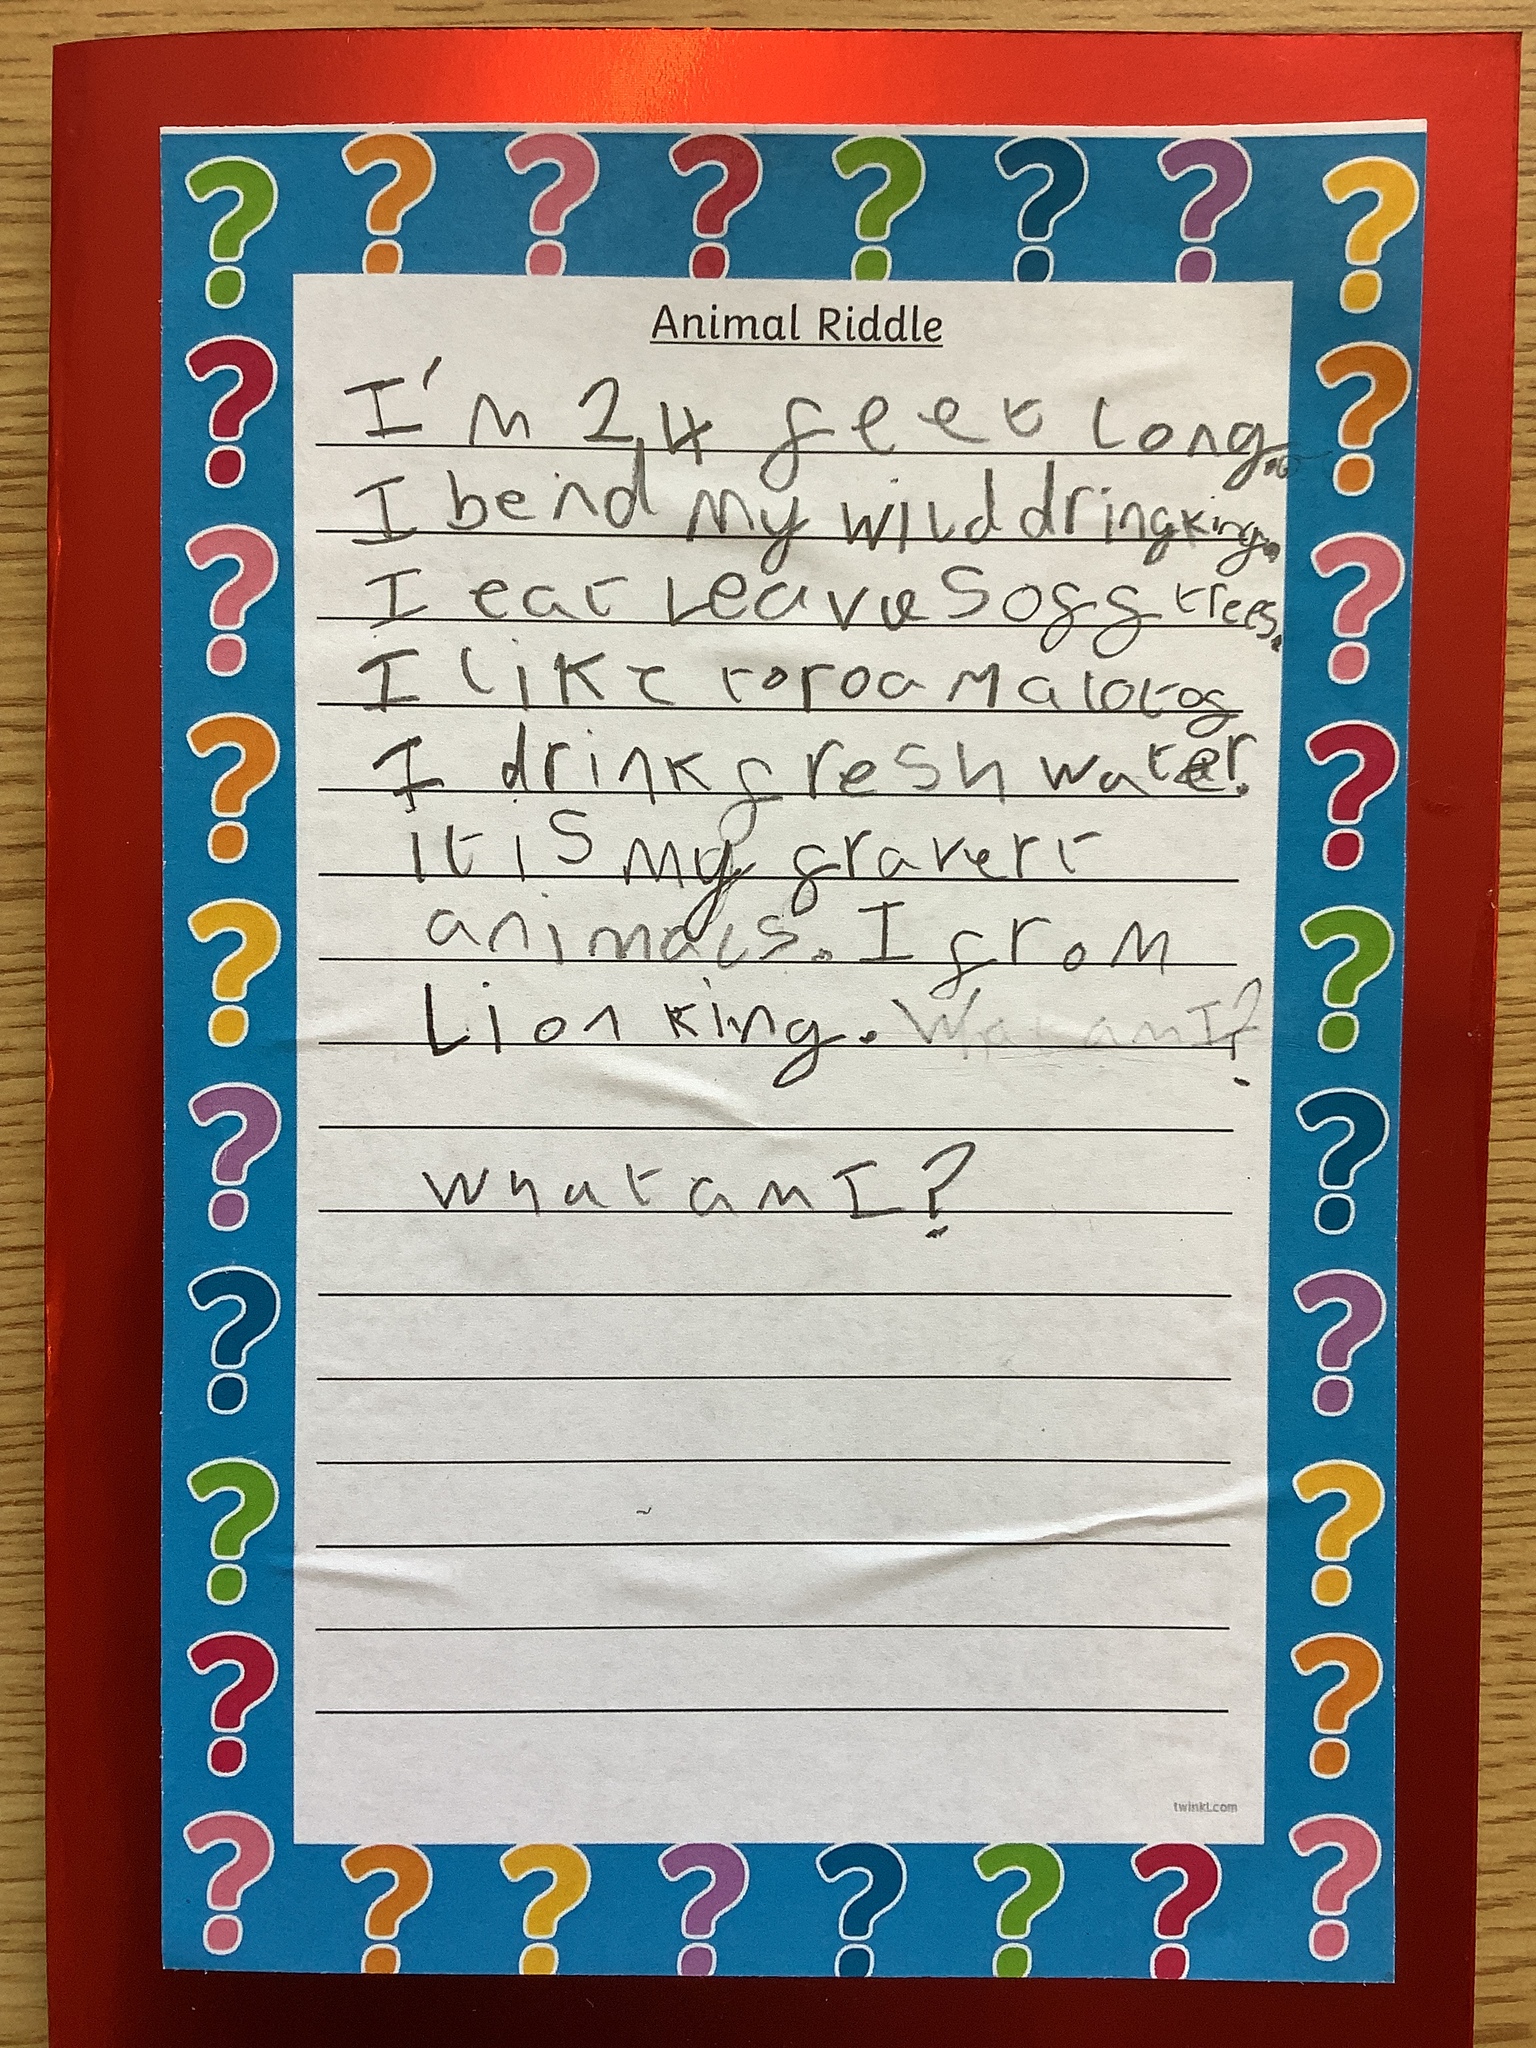 Animal Riddle
I'm 2,4 feet long.
I bend my wild dringking.
I eat Leaves off trees.
I like to roam a lot og
I drink fresh water.
it is my fravert
animals. I from
Lion king. What am I?
What am I?
twinkl.com